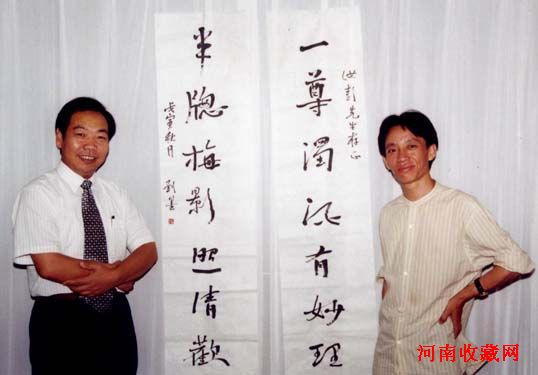 一尊濁酒有妙理
汝彭先生存正
半牕梅影助清歡
戊寅秋月
劉墨
河南收藏网